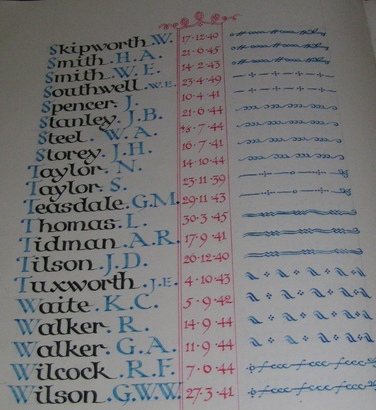 Skipworth. W. 17·12·40
Smith. H.A. 21·6·45
Smith. W.E. 14·2·43
Southwell. W.E. 23·4·49
Spencer. J. 10·4·41
Stanley. J.B. 21·6·44
Steel. W.A. 7·44
Storey. J.H. 16·7·41
Taylor. N. 14·10·44
Taylor. S. 23·11·39
Teasdale. G.M. 29·11·43
Thomas. L. 30·3·45
Tidman. A.R. 17·9·41
Tilson. J.D. 26·12·40
Tuxworth. J.E. 4·10·43
Waite. K.C. 5·9·42
Walker. R. 14·9·44
Walker. G.A. 11·9·44
Wilcock. R.F. 7·6·44
Wilson. G.W.W. 27·3·41